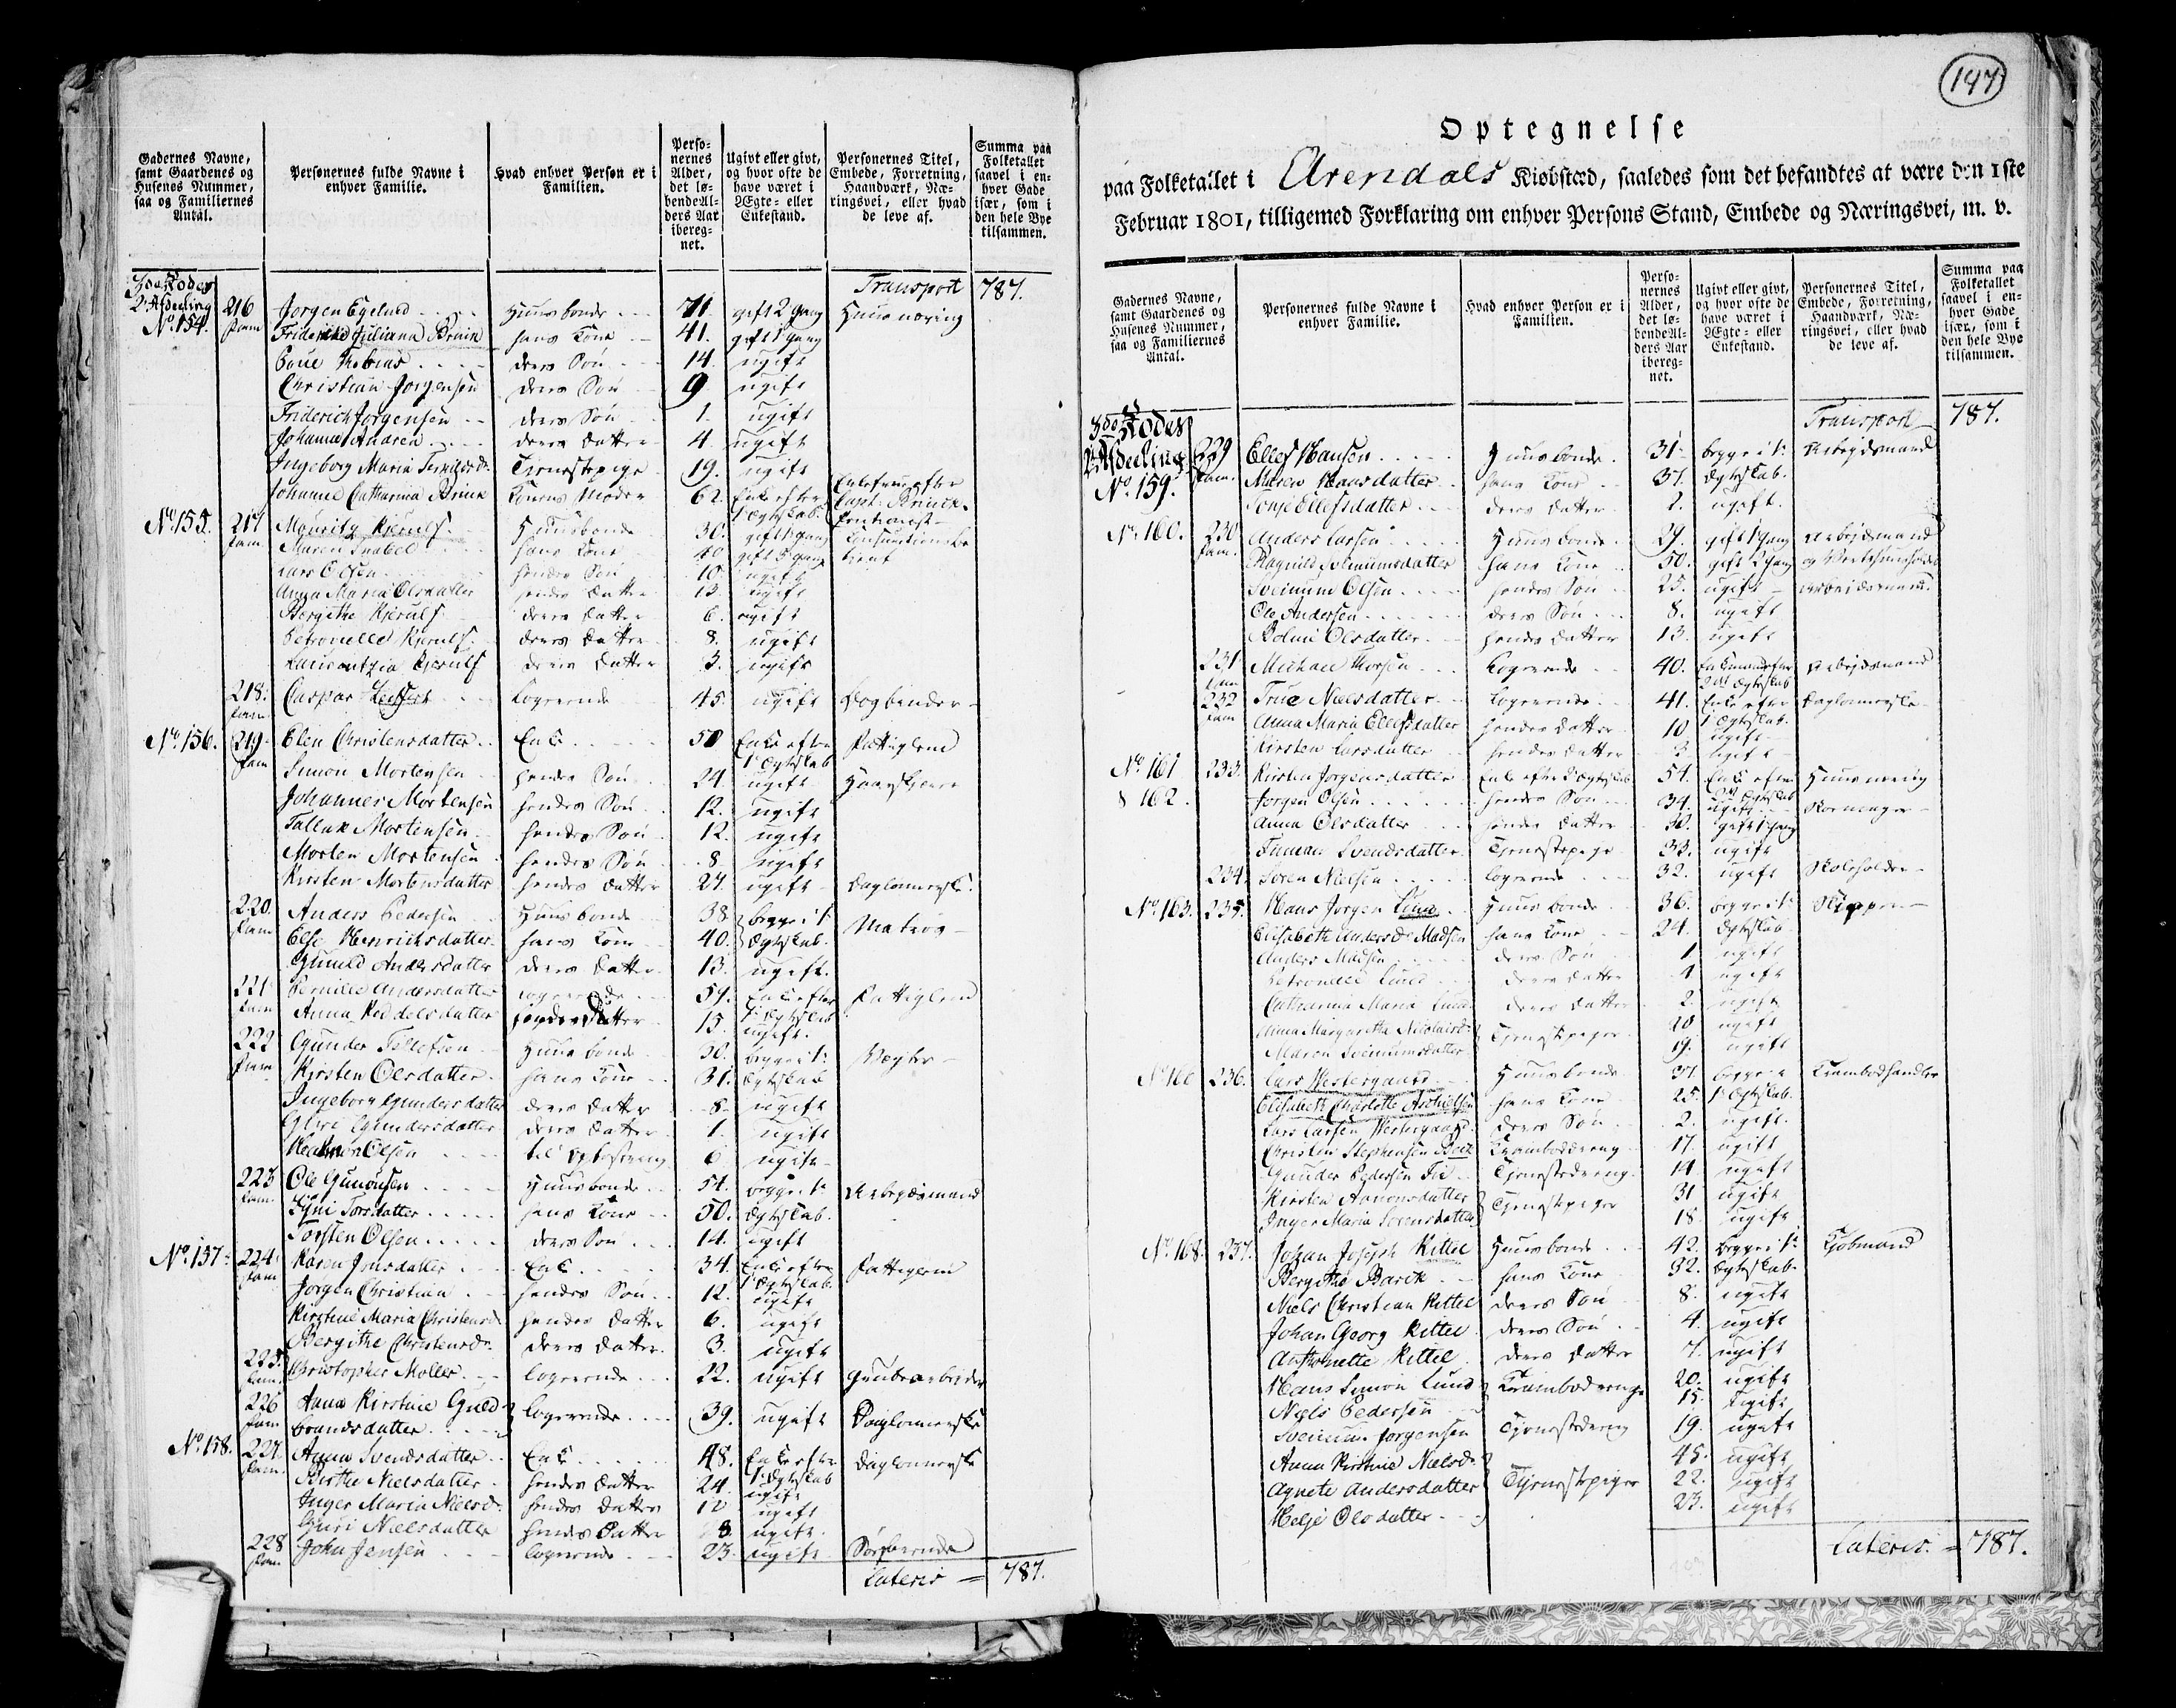 Gadernes Navne, samt Gaardenes og Husenes Nummer, saa og Familiernes Antal.
Personernes fulde Navne i enhver Familie.
Hvad enhver Person er i Familien.
Personernes Alder, det løbende Alders Aar iberegnet.
Ugivt eller givt, og hvor ofte de have været i Ægte- eller Enkestand.
Personernes Titel, Embede, Forretning, Haandværk, Næringsvei, eller hvad de leve af.
Summa paa Folketallet saavel i enhver Gade især, som i den hele Bye tilsammen.
3die Rodes 2 Afdeling Transport 787.
No. 154. 216 fam Jørgen Egelund Huusbonde 71 gift 2 gang Huusnæring
Friderike Juliana Brink hans Kone 41. gift 1 gang
Poul Tobias deres Søn 14 ugift
Christian Jørgensen deres Søn 9 ugift
Friderich Jørgensen deres Søn 1. ugift
Johanna Andrea deres Datter 4 ugift
Ingeborg Maria Terkildsd. Tienestepige 19. ugift
Johanne Catharina Brink Konens Moder 62 Enke efter 1 Egteskab. Enkefrue efter Capt. Brinck. Pentionist
No. 155. 217 fam. Mouritz Kjerulf Huusbonde 30. gift 1 gang Consumtionsbetient
Maren Snabel hans Kone 40 gift gang
Lars Olsen hendes Søn 10 ugift
Anna Maria Olsdatter hendes Datter 13. ugift
Bergithe Kjerulf deres Datter 6. ugift
Petronelle Kjerulf deres Datter 8. ugift
Kjerulf deres Datter 3. ugift
218. fam. Caspar Logerende 45. ugift Bogbinder
No. 156. 219 fam Elen Christensdatter Enke 50 Enke efter 1 Egteskab Fattiglem
Simon Mortensen hendes Søn 24. ugift
Johannes Mortensen hendes Søn 12. ugift
Tallak Mortensen hendes Søn 12. ugift
Morten Mortensen hendes Søn 8 ugift
Kirsten Mortensdatter hendes Datter 27. ugift Daglønnerske
220. fam Anders Pedersen Huusbonde 38 begge i 1. Matros
Else Henrichsdatter hans Kone 40. Egteskab.
Gunild Andersdatter deres Datter 13. ugift.
221 fam Pernille Andersdatter logerende 59. Enke efter 1 Egteskab Fattiglem
Anna Reddelsdatter hendes Datter 15. ugift.
222 fam Gunder Tellefsen Huusbonde 30. begge i 1. Vægter
Kirsten Olsdatter hans Kone 31. Egteskab
Ingeborg Gundersdatter deres Datter 8. ugift
Gundersdatter deres Datter 1. ugift
Olsen til Opfostring 6 ugift
223 fam. Ole Gunonsen Huusbonde 54. begge i 1. Arbejdsmand
Torsdatter hans Kone 50. Egteskab.
Torsten Olsen deres Søn 14. ugift
No. 157. 224. fam Karen Jensdatter Enke 34. Enke efter 1 Egteskab. Fattiglem
Jørgen Christian hendes Søn 12. ugift
Kirstine Maria Christensd. hendes Datter 6. ugift
Bergithe Christensd. deres Datter 3. ugift
225. fam. Christopher Møller logerende 22. ugift
226 fam Anna Kirstine Guldbrandsdatter logerende 39. ugift Daglønnerske
No. 158. 227. fam. Anna Svendsdatter Enke 48. Enke efter 1 Egteskab Daglønnerske
Birthe Nielsdatter hendes Datter 24. ugift
Inger Maria Nielsd. hendes Datter 12 ugift
Guri Nielsdatter hendes Datter 8. ugift
228 fam. John Jensen logerende 23. ugift Søefarende
Lateris = 787.
147
Optegnelse
paa Folketallet i Arendals Kiøbstæd, saaledes som det befandtes at være den 1ste
Februar 1801, tilligemed Forklaring om enhver Persons Stand, Embede og Næringsvei, m. v.
Gadernes Navne, samt Gaardenes og Husenes Nummer, saa og Familiernes Antal.
Personernes fulde Navne i enhver Familie.
Hvad enhver Person er i Familien.
Personernes Alder, det løbende Alders Aar iberegnet.
Ugivt eller givt, og hvor ofte de have været i Ægte- eller Enkestand.
Personernes Titel, Embede, Forretning, Haandværk, Næringsvei, eller hvad de leve af.
Summa paa Folketallet saavel i enhver Gade især, som i den hele Bye tilsammen.
3die Rodes 2 Afdeling Transport 787.
No. 159. 229 fam. Ellef Hansen Huusbonde 31 begge i 1. Arbejdsmand
Maren Hansdatter hans Kone 37. Egteskab.
Tonje Ellefsdatter deres Datter 2. ugift.
No. 160. 230 fam. Anders Larsen Huusbonde 29. gift 1 gang Arbejdsmand
Ragnild Sveinumsdatter hans Kone 50. gift 2 gang og Værtshuusholder
Sveinum Olsen hendes Søn 25. ugift Arbeidsmand.
Ole Andersen deres Søn 8. ugift
Olsdatter hendes Datter 13. ugift
231 fam Michael Thorsen Logerende 40. Enkemand efter Egteskab Arbejdsmand
232 fam True Nielsdatter Logerende 41. Enke efter 1 Egteskab Daglønnerske
Anna Maria Ellefsdatter hendes Datter 10 ugift
Kirsten Larsdatter hendes Datter 3 ugift
No. 161 & 162. 233. Kirsten Jørgensdatter Enke efter Egteskab 54. Enke efter Egteskab Huusnæring
Jørgen Olsen hendes Søn 34. ugift
Anna Olsdatter hendes Datter 30. gift 1 gang
Svendsdatter Tienestepige 33. ugift
234. Søren Nielsen logerende 32. ugift Skoleholder
No. 163. 235. Hans Jørgen Lund Huusbonde 36. begge i 1. Skipper
Elisabeth Andersd. Madsen hans Kone 24. Egteskab
Anders Madsen deres Søn 1 ugift
Petronelle Lund deres Datter 4 ugift
Catharina Maria Lund deres Datter 2. ugift
Anna Margaretha Nicolaisd. Tienestepiger 20 ugift
Maren Sveinumsdatter 19. ugift
No. 166 236. Lars Westergaard Huusbonde 37 begge i Krambodhandler
Elisabeth Charlotte hans Kone 25. 1 Egteskab.
Lars Larsen Westergaard deres Søn 2. ugift.
Christen Stephensen Krambodsdreng 17. ugift
Gunder Pedersen Tienestedreng 14. ugift
Kirsten Aanonsdatter Tienestepiger 31 ugift
Inger Maria Sørensdatter 18. ugift
No. 168. 237. Johan Joseph Kittel Huusbonde 42. begge i 1. Kjøbmand
Bergithe hans Kone 32. Egteskab.
Niels Christian Kittel deres Søn 8. ugift
Johan Georg Kittel deres Søn 4. ugift
Anthonette Kittel deres Datter 7. ugift
Hans Simon Lund Krambodsdrenge 20. ugift
Niels Pedersen 15. ugift
Sveinum Jørgensen Tienestedreng 19. ugift
Anna Kirstine Nielsd. 45. ugift
Agnete Andersdatter Tienestepiger 22. ugift
Helje Olsdatter 23. ugift
Lateris = 787.